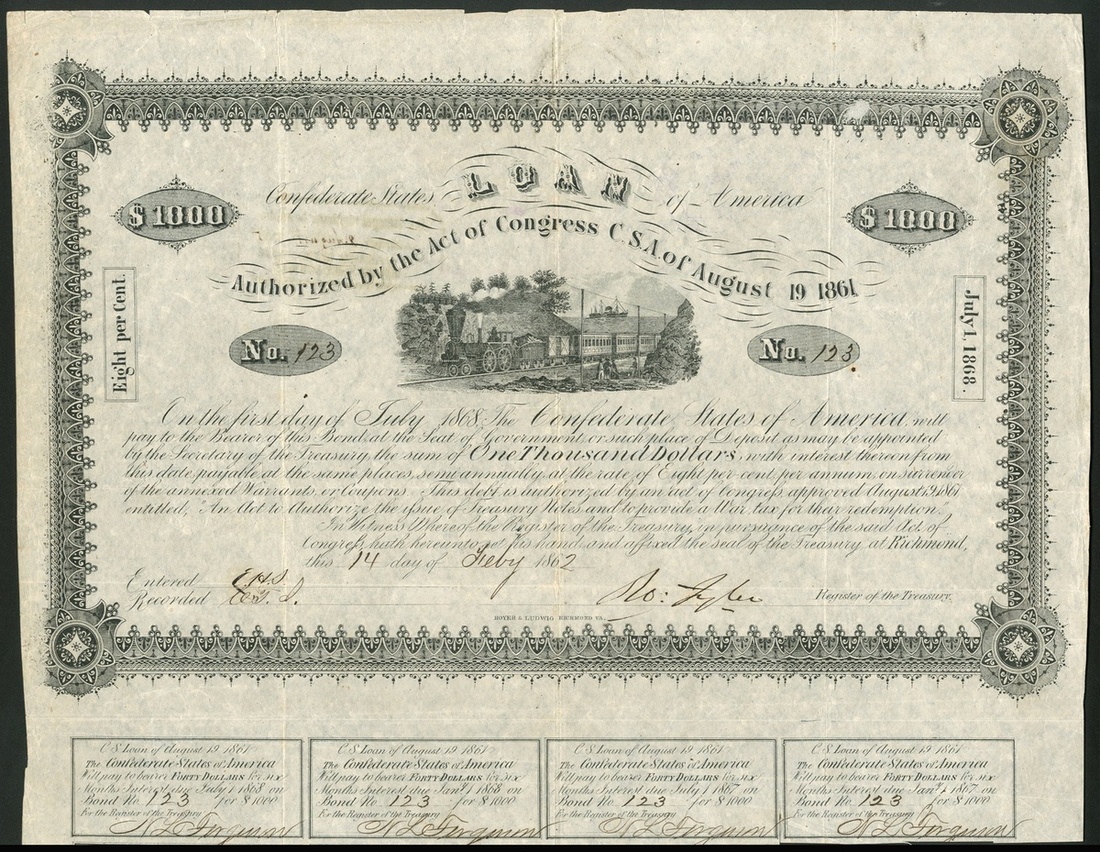 Confederate States LOAN of America
Authorized by the Act of Congress C.S.A. of August 19 1861
$1000
$1000
Eight per Cent.
July 1, 1868.
No. 123
No. 123
On the first day of July 1868 The Confederate States of America, will
pay to the Bearer of this Bond, at the Seat of Government, or such place of Deposit as may be appointed
by the Secretary of the Treasury, the sum of One Thousand Dollars, with interest thereon from
this date payable at the same places, semi annually, at the rate of Eight per cent. per annum, on surrender
of the annexed Warrants, or Coupons. This debt is authorized by an act of Congress, approved August 19, 1861
entitled, "An Act to Authorize the issue of Treasury Notes, and to provide a War tax for their redemption.
In Witness Whereof, the Register of the Treasury, in pursuance of the said Act of
Congress, hath hereunto set his hand, and affixed the seal of the Treasury at Richmond,
this 14 day of Feby 1862
Entered E.H.S.
Recorded
Ro: Tyler Register of the Treasury.
HOYER & LUDWIG RICHMOND VA.
C.S. Loan of August 19 1861
The Confederate States of America
Will pay to bearer FORTY DOLLARS for six
Months Interest due July 1 1868 on
Bond No. 123 for $1000
For the Register of the Treasury
N L Ferguson
C.S. Loan of August 19 1861
The Confederate States of America
Will pay to bearer FORTY DOLLARS for six
Months Interest due Jany 1 1868 on
Bond No. 123 for $1000
For the Register of the Treasury
N L Ferguson
C.S. Loan of August 19 1861
The Confederate States of America
Will pay to bearer FORTY DOLLARS for six
Months Interest due July 1 1867 on
Bond No. 123 for $1000
For the Register of the Treasury
N L Ferguson
C.S. Loan of August 19 1861
The Confederate States of America
Will pay to bearer FORTY DOLLARS for six
Months Interest due Jany 1 1867 on
Bond No. 123 for $1000
For the Register of the Treasury
N L Ferguson